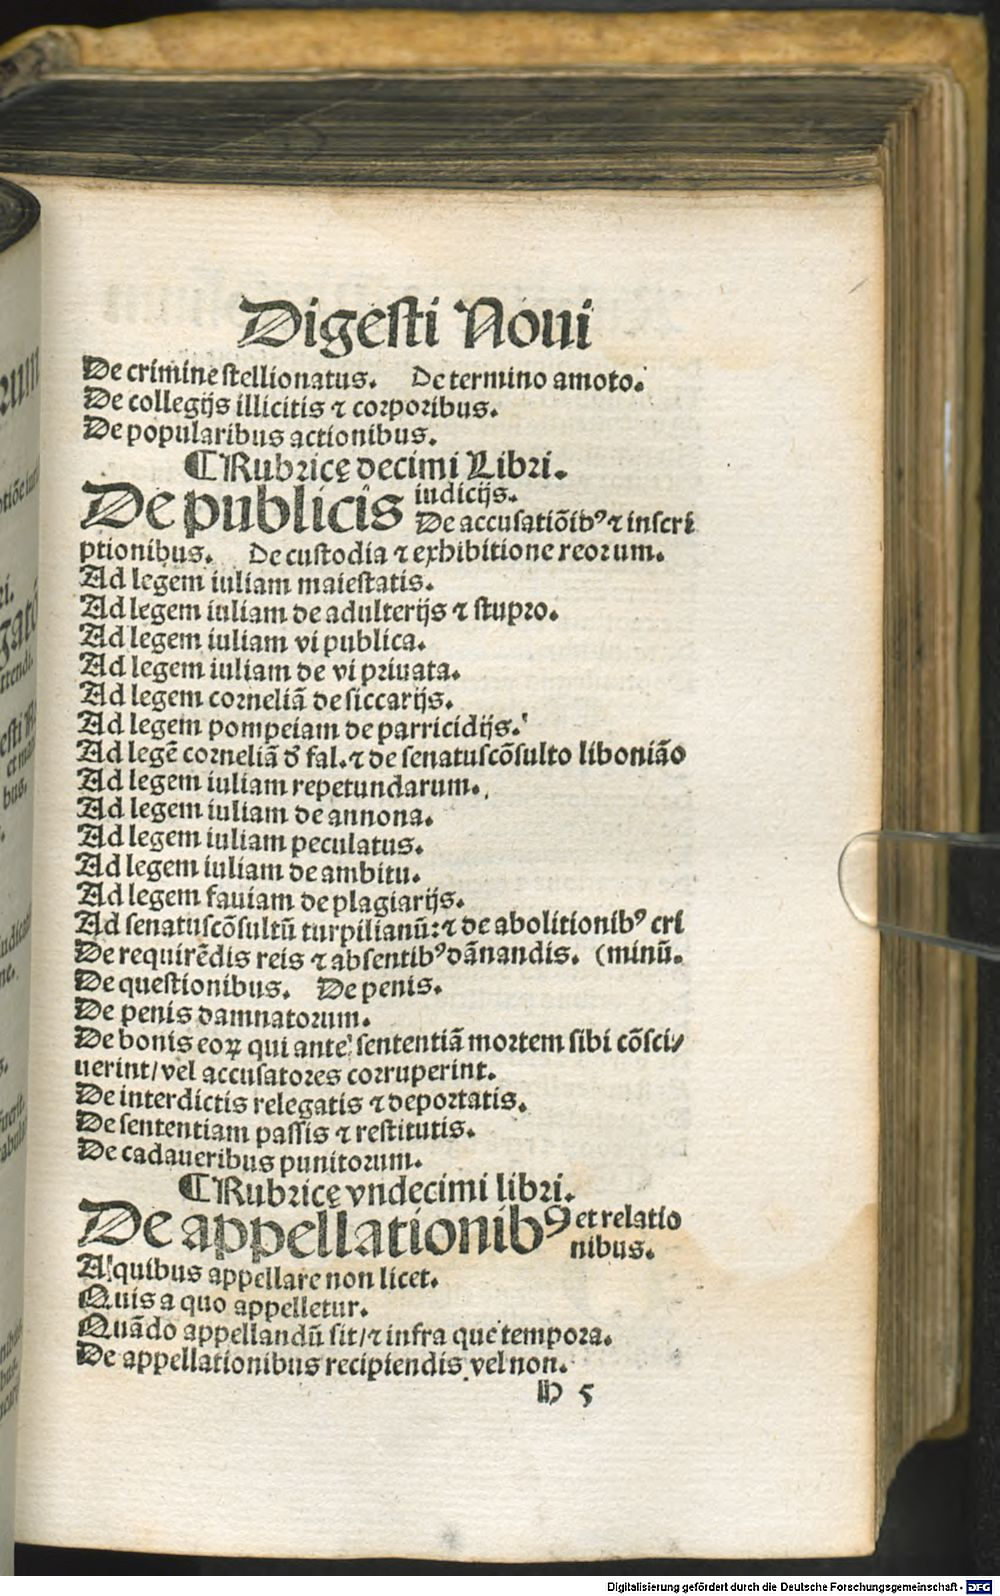 Digesti Noui
De crimine stellionatus. De termino amoto.
De collegijs illicitis ⁊ corporibus.
De popularibus actionibus.
¶ Rubrice decimi Libri.
De publicis iudicijs.
De accusatiõibꝰ ⁊ inscri
ptionibus. De custodia ⁊ exhibitione reorum.
Ad legem iuliam maiestatis.
Ad legem iuliam de adulterijs ⁊ stupro.
Ad legem iuliam vi publica.
Ad legem iuliam de vi priuata.
Ad legem corneliã de siccarijs.
Ad legem pompeiam de parricidijs.
Ad legẽ corneliã ď fal. ⁊ de senatuscõsulto libonião
Ad legem iuliam repetundarum.
Ad legem iuliam de annona.
Ad legem iuliam peculatus.
Ad legem iuliam de ambitu.
Ad legem fauiam de plagiarijs.
Ad senatuscõsultũ turpilianũ: ⁊ de abolitionibꝰ cri
De requirẽdis reis ⁊ absentibꝰ dãnandis. (minũ.
De questionibus. De penis.
De penis damnatorum.
De bonis eoꝝ qui ante sententiã mortem sibi cõsci/
uerint/ vel accusatores corruperint.
De interdictis relegatis ⁊ deportatis.
De sententiam passis ⁊ restitutis.
De cadaueribus punitorum.
¶ Rubrice vndecimi libri.
De appellationibꝰ et relatio
nibus.
A quibus appellare non licet.
Quis a quo appelletur.
Quãdo appellandũ sit/ ⁊ infra que tempora.
De appellationibus recipiendis vel non.
h 5
Digitalisierung gefördert durch die Deutsche Forschungsgemeinschaft - DFG